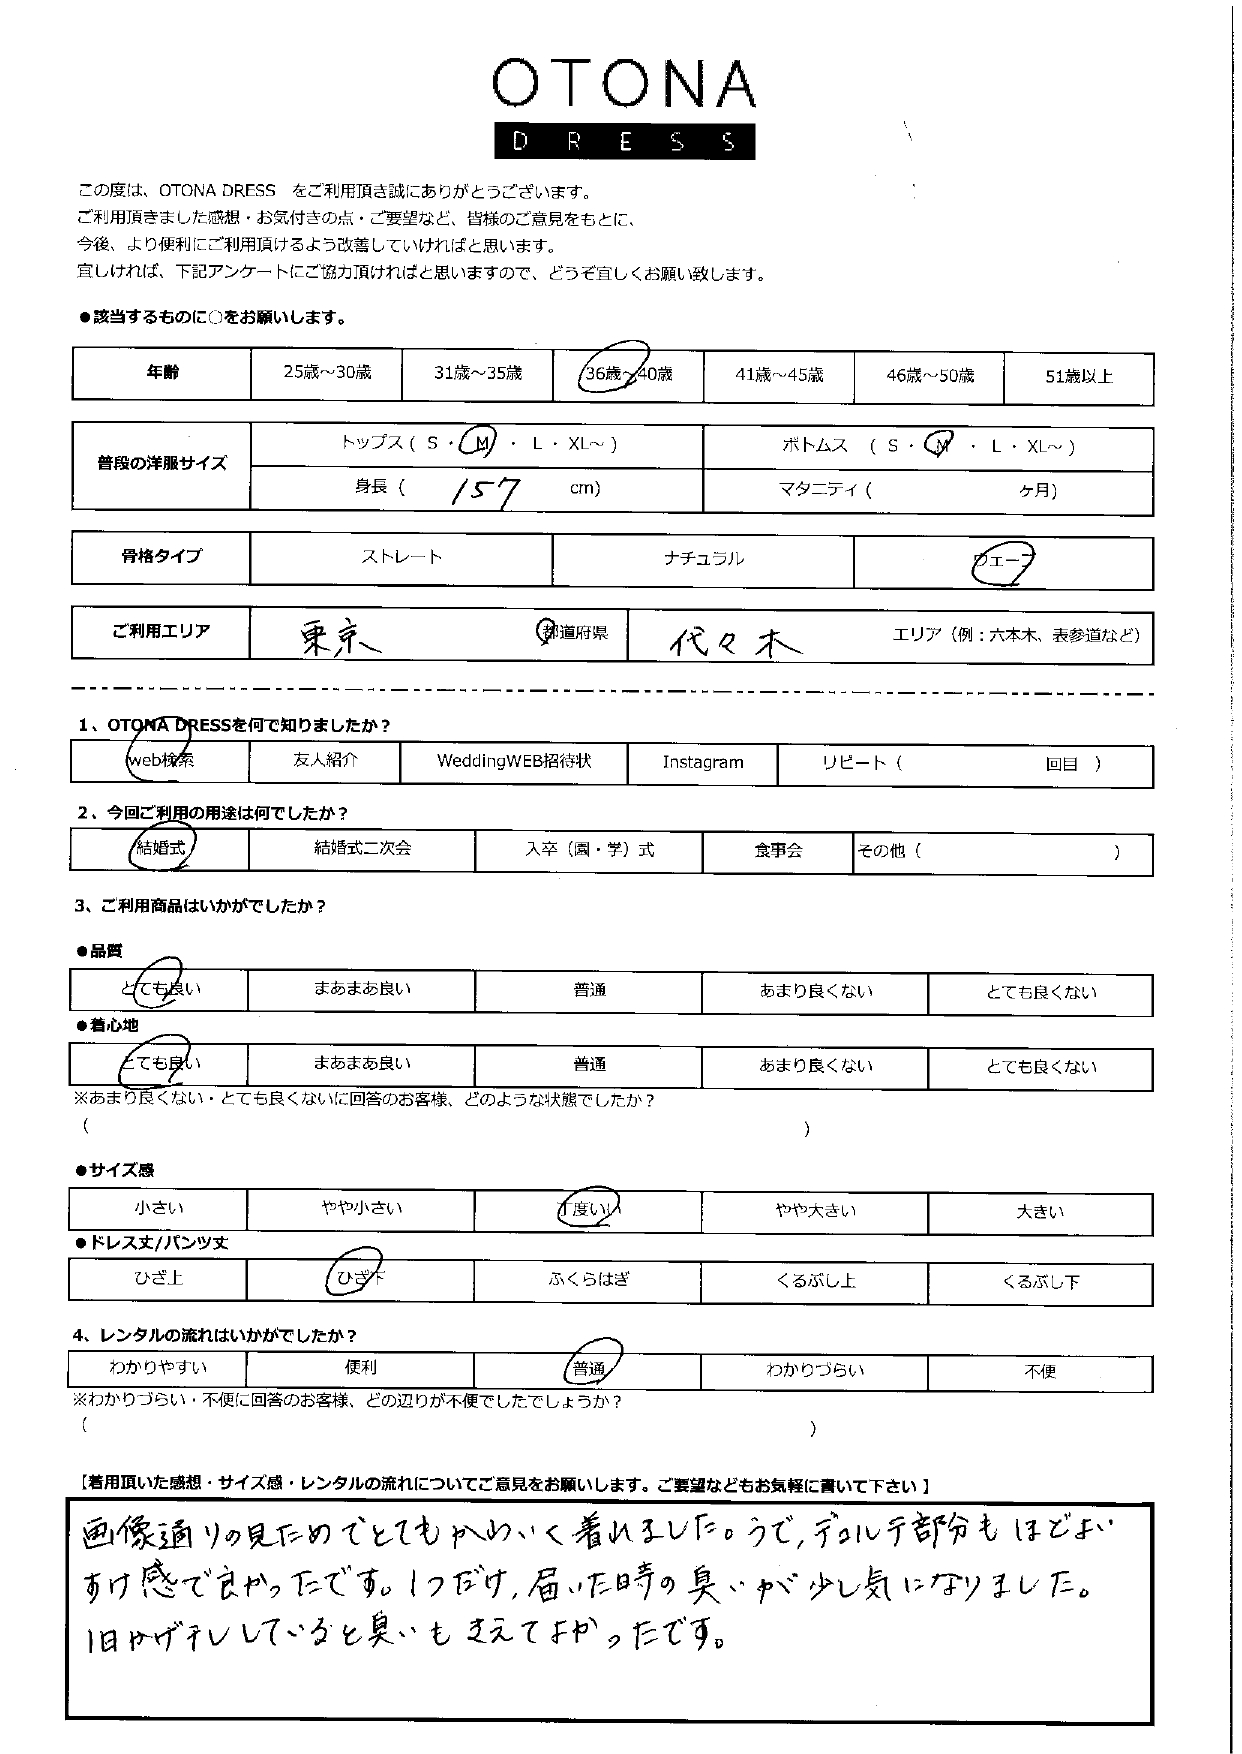 OTONA
DRESS
この度は、OTONA DRESS をご利用頂き誠にありがとうございます。
ご利用頂きました感想・お気付きの点・ご要望など、皆様のご意見をもとに、
今後、より便利にご利用頂けるよう改善していければと思います。
宜しければ、下記アンケートにご協力頂ければと思いますので、どうぞ宜しくお願い致します。
●該当するものに○をお願いします。
年齢 25歳～30歳 31歳～35歳 36歳～40歳 41歳～45歳 46歳～50歳 51歳以上
普段の洋服サイズ トップス ( S ・ M ・ L ・ XL～ ) ボトムス ( S ・ M ・ L ・ XL～ )
身長 ( 157 cm) マタニティ ( ケ月)
骨格タイプ ストレート ナチュラル ウェーブ
ご利用エリア 東京 都道府県 代々木 エリア（例：六本木、表参道など）
1、OTONA DRESSを何で知りましたか？
web検索 友人紹介 WeddingWEB招待状 Instagram リピート ( 回目 )
2、今回ご利用の用途は何でしたか？
結婚式 結婚式二次会 入卒（園・学）式 食事会 その他 ( )
3、ご利用商品はいかがでしたか？
●品質
とても良い まあまあ良い 普通 あまり良くない とても良くない
●着心地
とても良い まあまあ良い 普通 あまり良くない とても良くない
※あまり良くない・とても良くないに回答のお客様、どのような状態でしたか？
( )
●サイズ感
小さい やや小さい 丁度いい やや大きい 大きい
●ドレス丈/パンツ丈
ひざ上 ひざ下 ふくらはぎ くるぶし上 くるぶし下
4、レンタルの流れはいかがでしたか？
わかりやすい 便利 普通 わかりづらい 不便
※わかりづらい・不便に回答のお客様、どの辺りが不便でしたでしょうか？
( )
【着用頂いた感想・サイズ感・レンタルの流れについてご意見をお願いします。ご要望などもお気軽に書いて下さい】
画像通りの見ためでとてもかわいく着れました。うで,デコルテ部分もほどよい
すけ感で良かったです。1つだけ,届いた時の臭いが少し気になりました。
1日かげ干ししていると臭いもきえてよかったです。